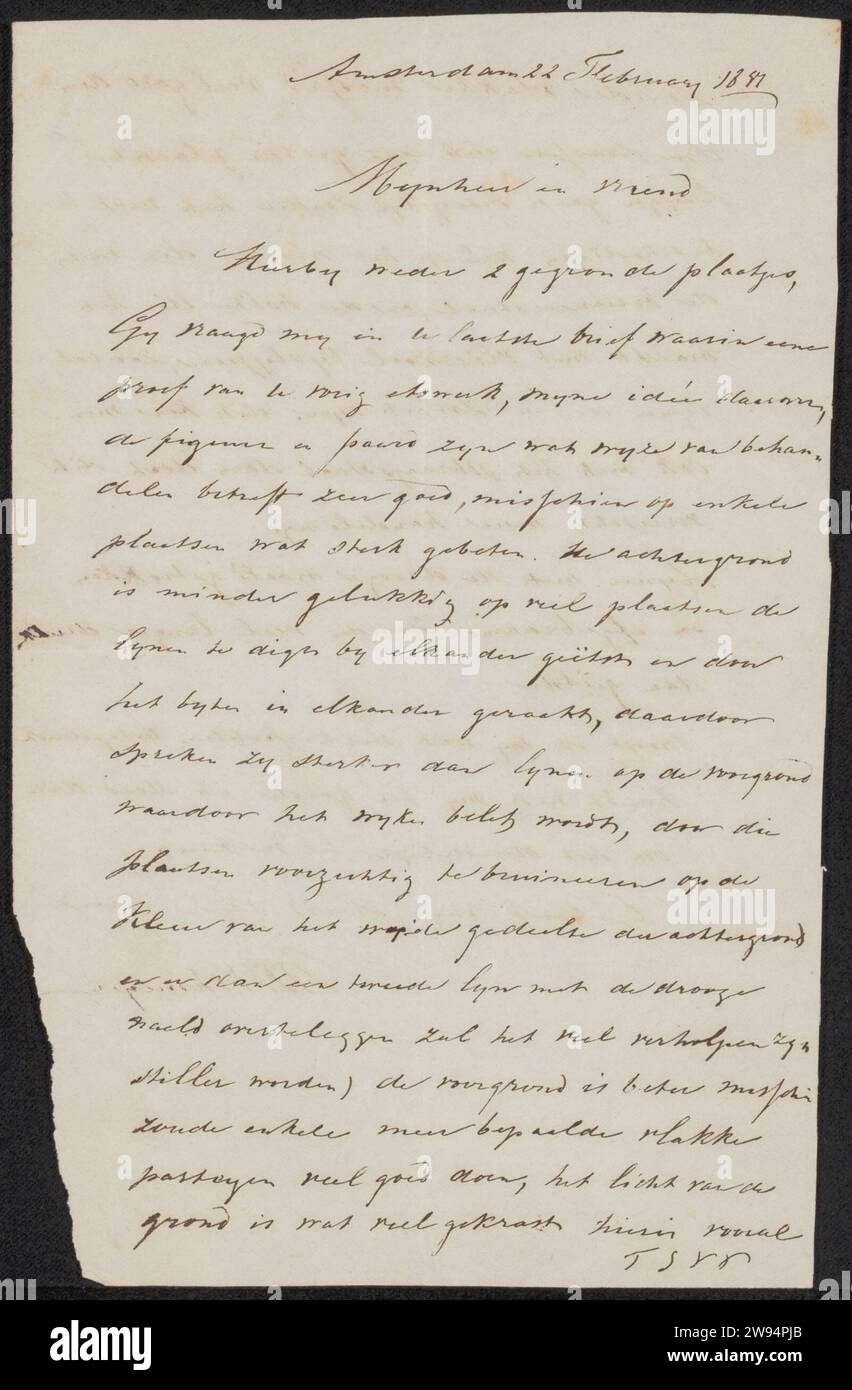 Amsterdam 22 February 18
Mynheer en vriend
Hierby weder 2 gegronde plaatjes,
Gy vraagd my in de laatste brief waarin eene
proef van de vorig etswerk, myne ideé daarover,
de figuren en paard zyn wat wyze van behan-
delen betreft zeer goed, misschien op enkele
plaatsen wat sterk gebeten. De achtergrond
is minder gelukkig op veel plaatsen de
lynen te digt by elkander geëtst en door
het byten in elkander geraakt, daardoor
spreken zy sterker dan lynen op de voorgrond
waardoor het wyken belet wordt, door die
plaatsen voorzichtig te bruineeren op de
kleur van het wyde gedeelte der achtergrond
en er dan een tweede lyn met de drooge
naald overteleggen zal het veel verholpen zyn
stiller worden) de voorgrond is beter misschien
zoude enkele meer bepaalde vlakke
partyen veel goed doen, het licht van de
grond is wat veel gekrast hierin vooral
alamy
Image ID: 2W94PJB
www.alamy.com